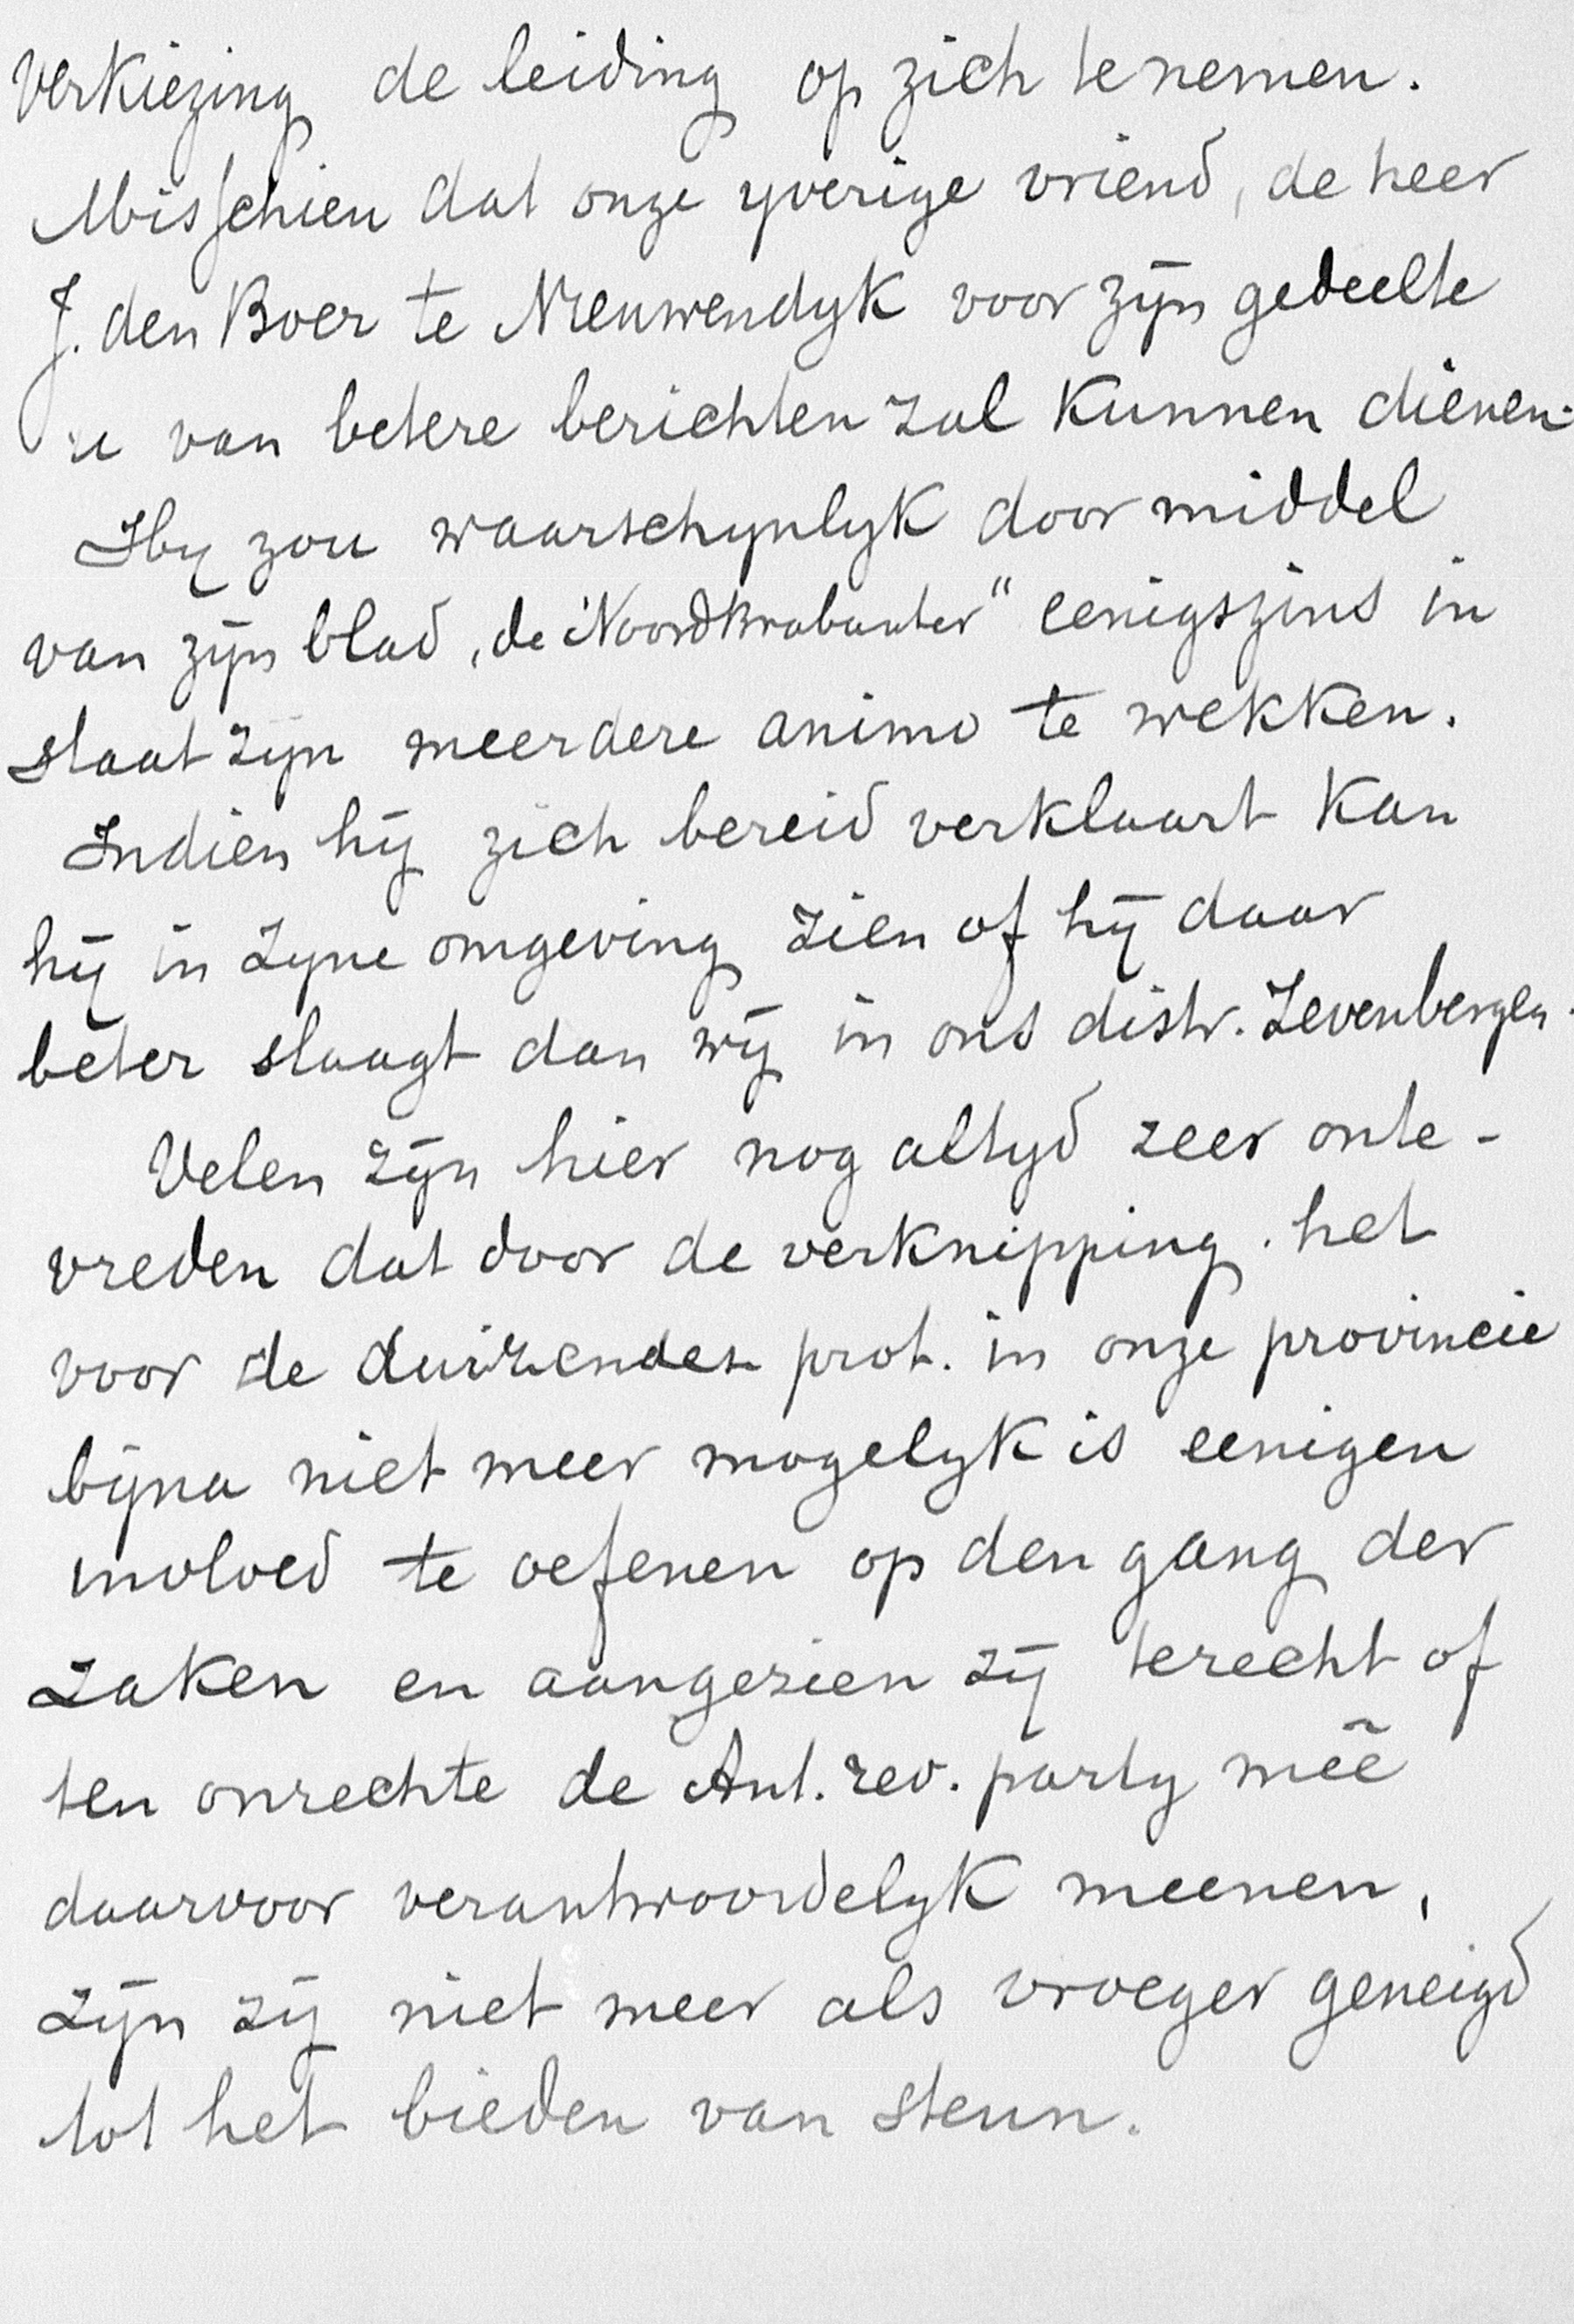 verkiezing de leiding op zich te nemen.
Misschien dat onze yverige vriend, de heer
J. den Boer te Nieuwendyk voor zyn gedeelte
u van betere berichten zal kunnen dienen.
Hy zou waarschynlyk door middel
van zyn blad „de NoordBrabanter" eenigszins in
staat zyn meerdere animo te wekken.
Indien hy zich bereid verklaart kan
hy in zyne omgeving zien of hy daar
beter slaagt dan wy in ons distr. Zevenbergen.
Velen zyn hier nog altyd zeer onte-
vreden dat door de verknipping het
voor de duizenden prot. in onze provincie
byna niet meer mogelyk is eenigen
invloed te oefenen op den gang der
zaken en aangezien zy terecht of
ten onrechte de Ant. rev. party meê
daarvoor verantwoordelyk meenen,
zyn zy niet meer als vroeger geneigd
tot het bieden van steun.